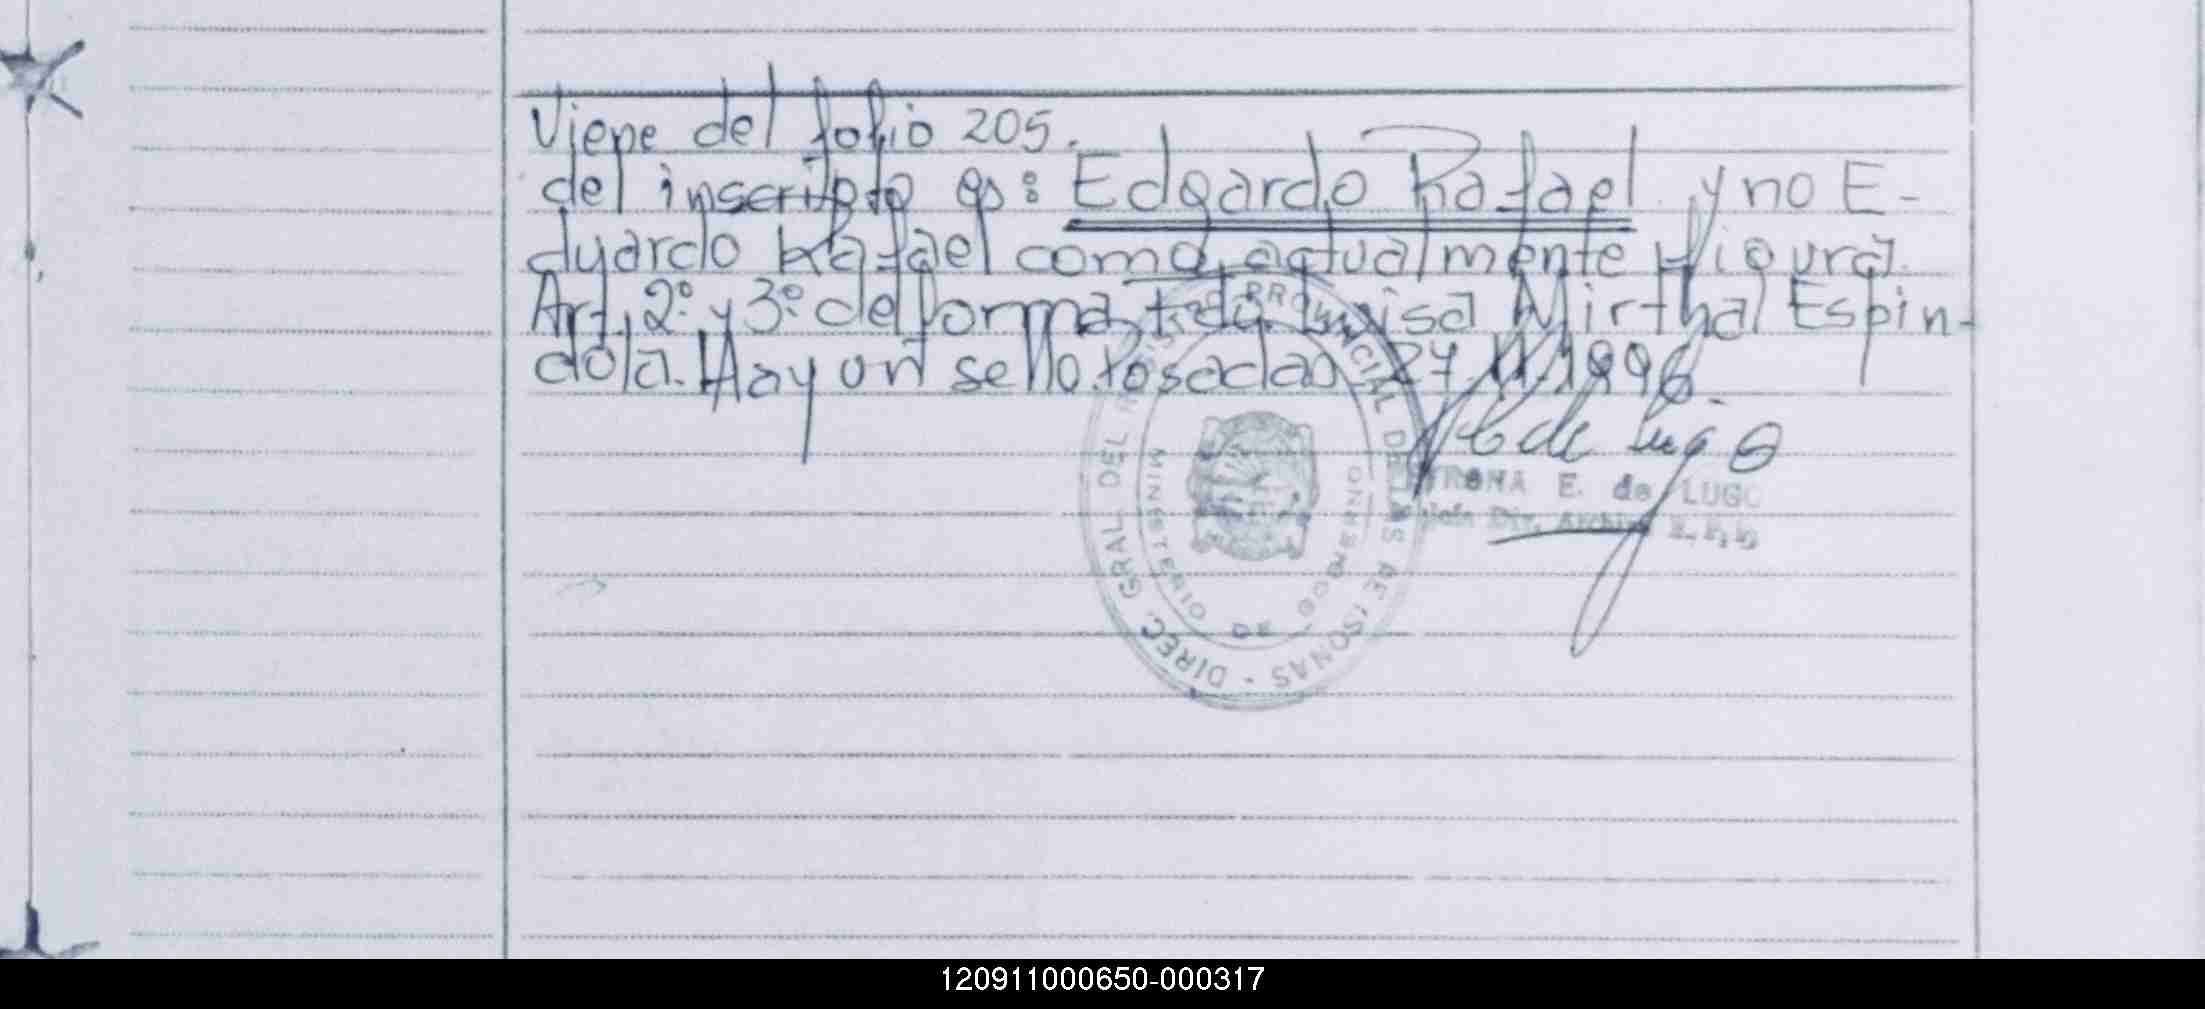 Viene del folio 205.
del inscripto es: Edgardo Rafael y no E-
duardo Rafael como actualmente figura.
Art. 2º y 3º de forma. Fdo. Luisa Mirtha Espín-
dola. Hay un sello. Posadas, 27 11 1996.
DIREC. GRAL. DEL REGISTRO PROVINCIAL DE LAS PERSONAS
MINISTERIO DE GOBIERNO
E. de LUGO
Jefe Div. Archivo
120911000650-000317